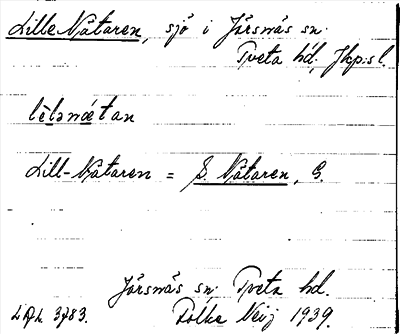 Lille Nätaren, sjö i Järsnäs sn.
Tveta hd, Jkp:sl.
lìlənǽtan
Lill-Nätaren = S. Nätaren, G.
Järsnäs sn. Tveta hd.
3783. Folke 1939.